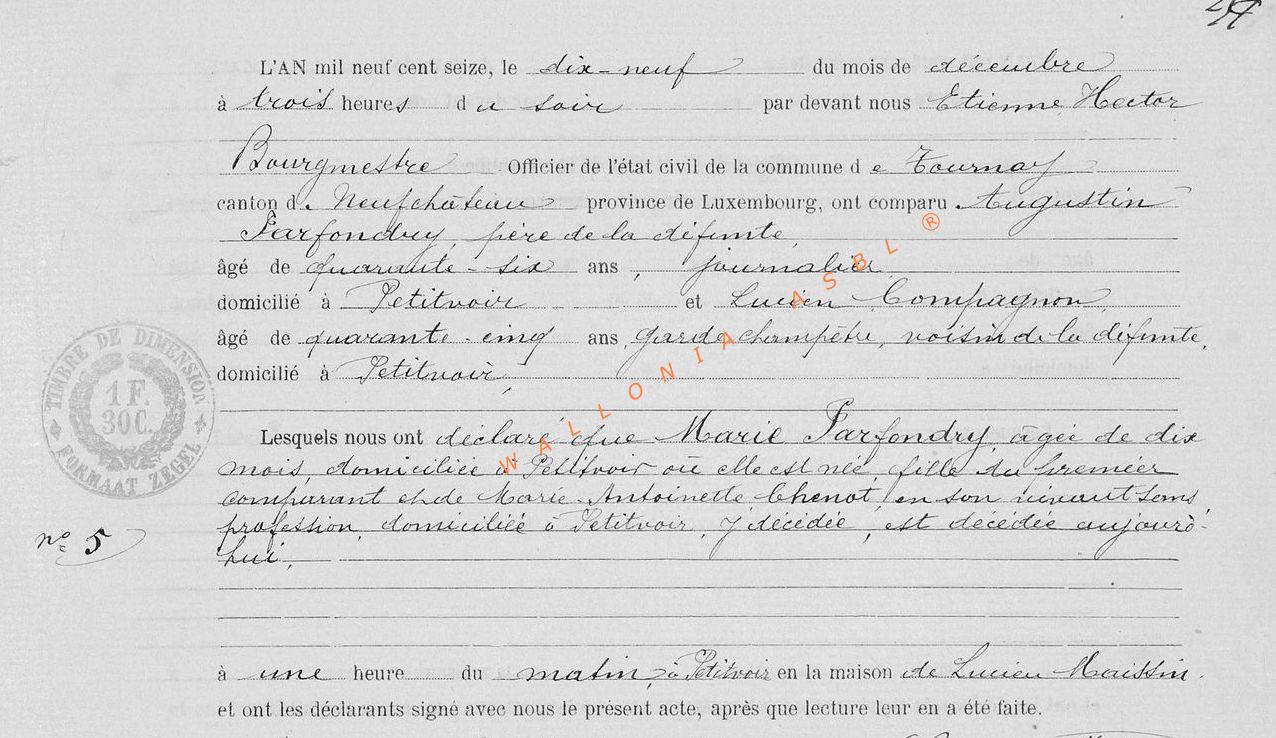 L'AN mil neuf cent seize, le dix-neuf du mois de décembre
à trois heures du soir par devant nous Etienne Hector
Bourgmestre Officier de l'état civil de la commune de Tournay
canton de Neufchâteau province de Luxembourg, ont comparu Augustin
Parfondry, père de la défunte,
âgé de quarante-six ans, journalier
domicilié à Petitvoir et Lucien Compagnon,
âgé de quarante-cinq ans, garde champêtre, voisin de la défunte,
domicilié à Petitvoir,
Lesquels nous ont déclaré que Marie Parfondry, âgée de dix
mois, domiciliée à Petitvoir où elle est née, fille du premier
comparant et de Marie-Antoinette Chenot, en son vivant sans
profession, domiciliée à Petitvoir, y décédée, est décédée aujourd'-
hui,
à une heure du matin, à Petitvoir en la maison de Lucien Maissin.
et ont les déclarants signé avec nous le présent acte, après que lecture leur en a été faite.
nº 5
TIMBRE DE DIMENSION
1 F.
30 C.
FORMAAT ZEGEL
WALLONIA ASBL ®